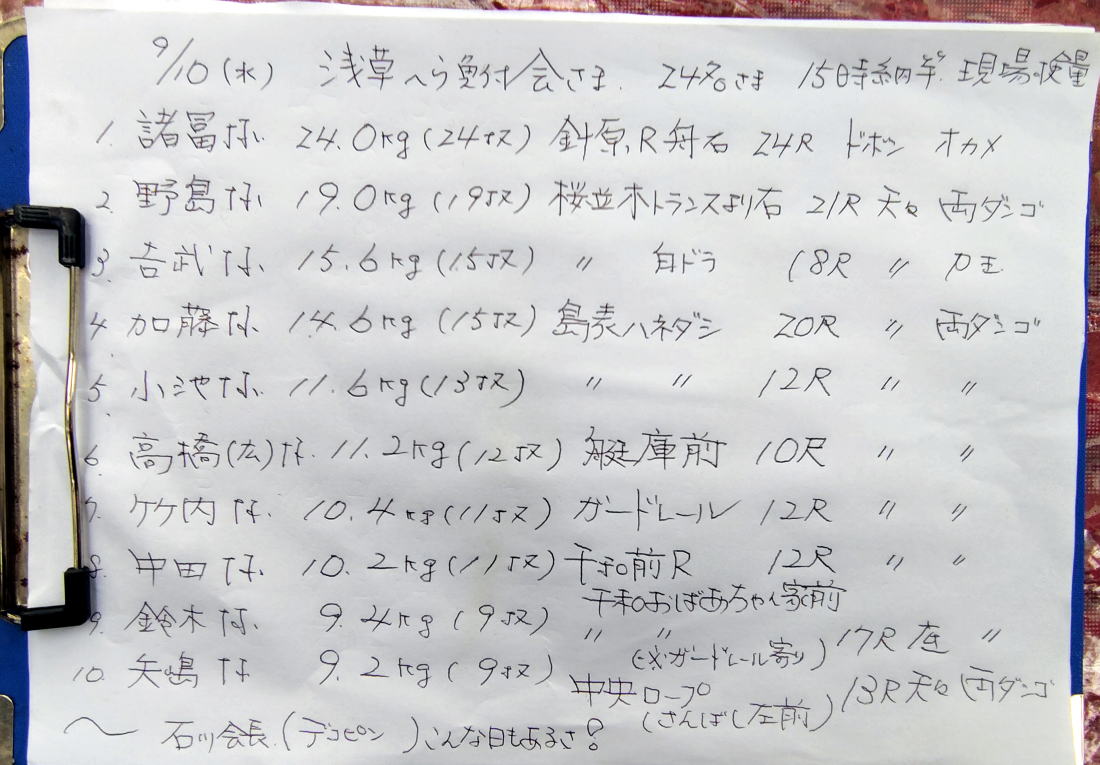 9/10(水) 浅草へら鮒会さま. 24名さま 15時納竿. 現場検量
1. 諸冨様. 24.0kg(24枚) 釙原R舟石 24R ドボン オカメ
2. 野島様. 19.0kg(19枚) 桜並木トランスより石 21R 天々 両ダンゴ
3. 吉武様. 15.6kg(15枚) 〃 白ドラ 18R 〃 カエ
4. 加藤様. 14.6kg(15枚) 島表ハネダシ 20R 〃 両ダンゴ
5. 小池様. 11.6kg(13枚) 〃 〃 12R 〃 〃
6. 高橋(広)様. 11.2kg(12枚) 艇庫前 10尺 〃 〃
7. 竹内様. 10.4kg(11枚) ガードレール 12R 〃 〃
8. 中田様. 10.2kg(11枚) 千和前R 12R 〃 〃
千和のおばあちゃん家前
9. 鈴木様. 9.4kg(9枚) 〃 〃 17R 底 〃
(※ガードレール寄り)
10. 矢嶋様 9.2kg(9枚) 中央ロープ 13R 天々 両ダンゴ
(さんばし左前)
〜 石川会長.(デコピン)こんな日もあるさ!